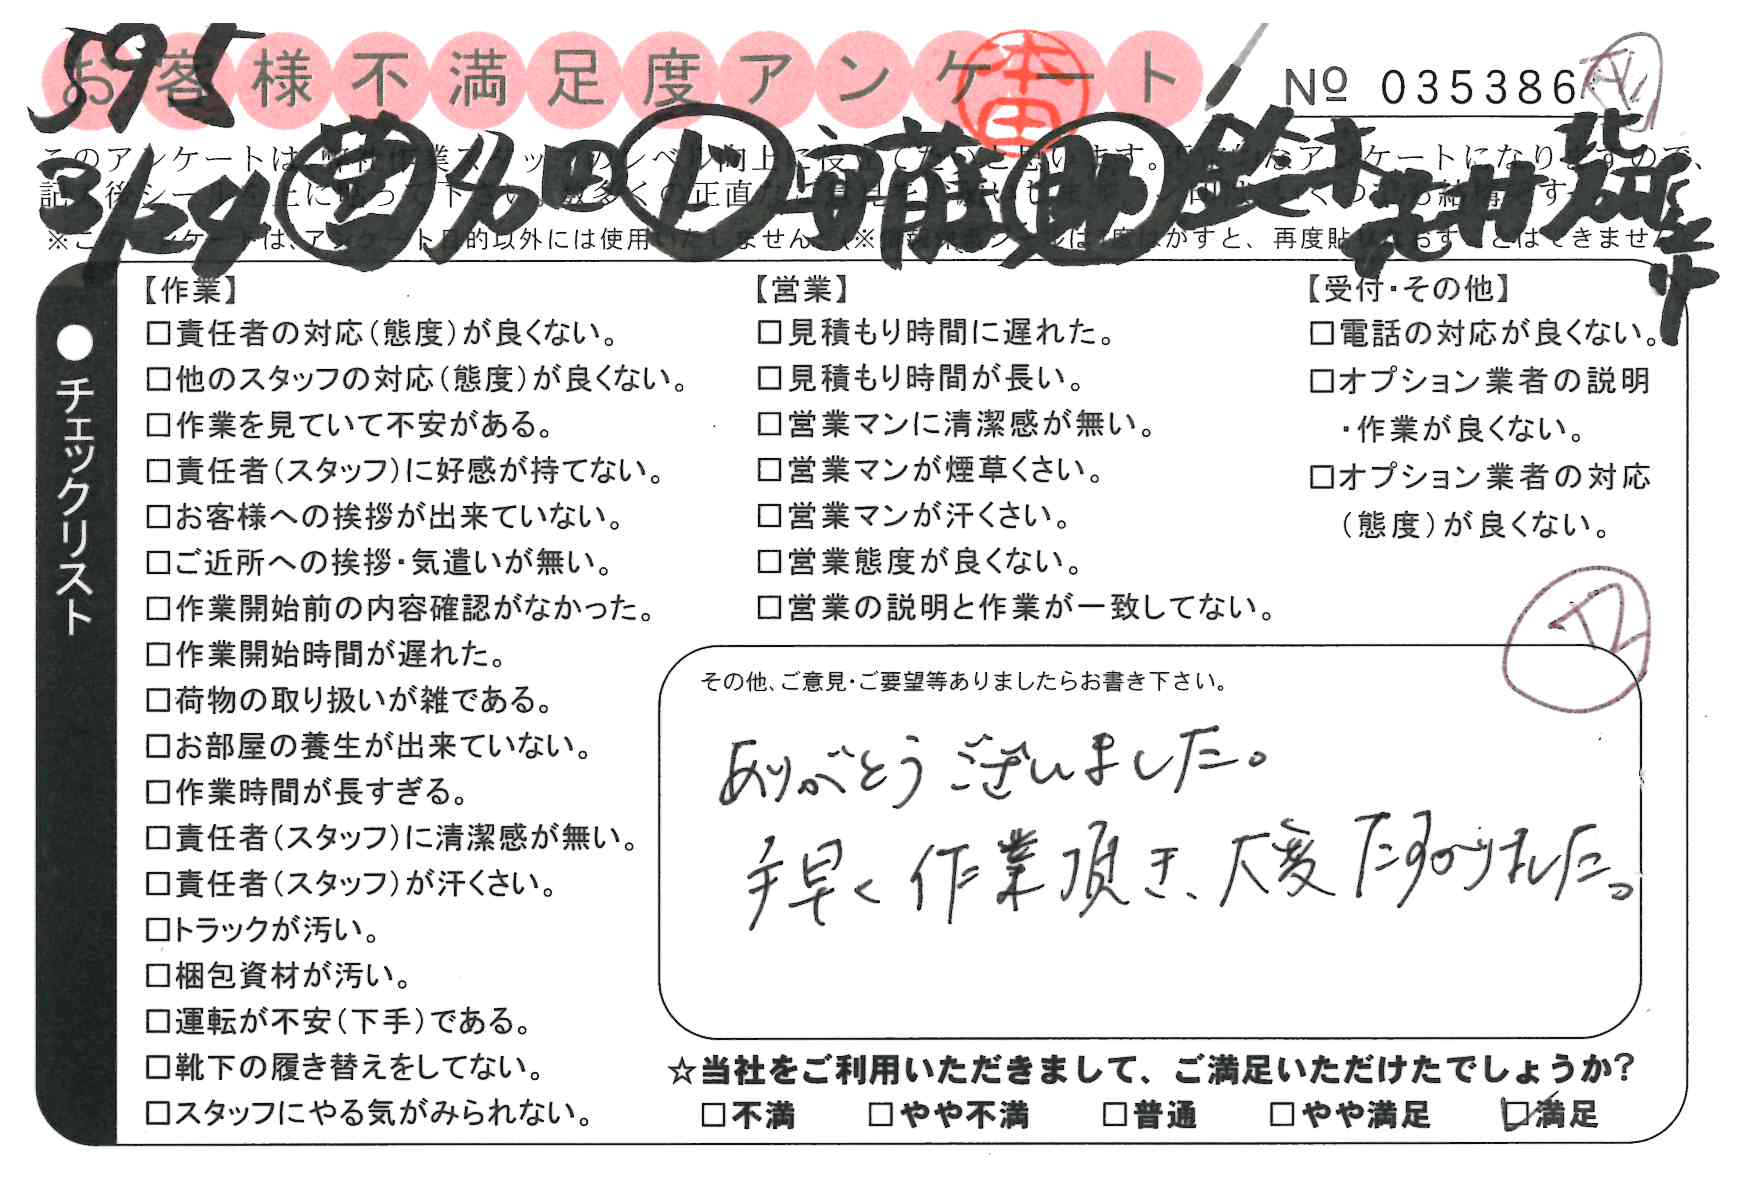 595
お客様不満足度アンケート
本田
№ 035386
3/24 営 助 鈴木
【作業】
□責任者の対応(態度)が良くない。
□他のスタッフの対応(態度)が良くない。
□作業を見ていて不安がある。
□責任者(スタッフ)に好感が持てない。
□お客様への挨拶が出来ていない。
□ご近所への挨拶・気遣いが無い。
□作業開始前の内容確認がなかった。
□作業開始時間が遅れた。
□荷物の取り扱いが雑である。
□お部屋の養生が出来ていない。
□作業時間が長すぎる。
□責任者(スタッフ)に清潔感が無い。
□責任者(スタッフ)が汗くさい。
□トラックが汚い。
□梱包資材が汚い。
□運転が不安(下手)である。
□靴下の履き替えをしてない。
□スタッフにやる気がみられない。
【営業】
□見積もり時間に遅れた。
□見積もり時間が長い。
□営業マンに清潔感が無い。
□営業マンが煙草くさい。
□営業マンが汗くさい。
□営業態度が良くない。
□営業の説明と作業が一致してない。
【受付・その他】
□電話の対応が良くない。
□オプション業者の説明
・作業が良くない。
□オプション業者の対応
(態度)が良くない。
●チェックリスト
その他、ご意見・ご要望等ありましたらお書き下さい。
ありがとうございました。
手早く作業頂き、大変たすかりました。
☆当社をご利用いただきまして、ご満足いただけたでしょうか?
□不満 □やや不満 □普通 □やや満足 ☑満足